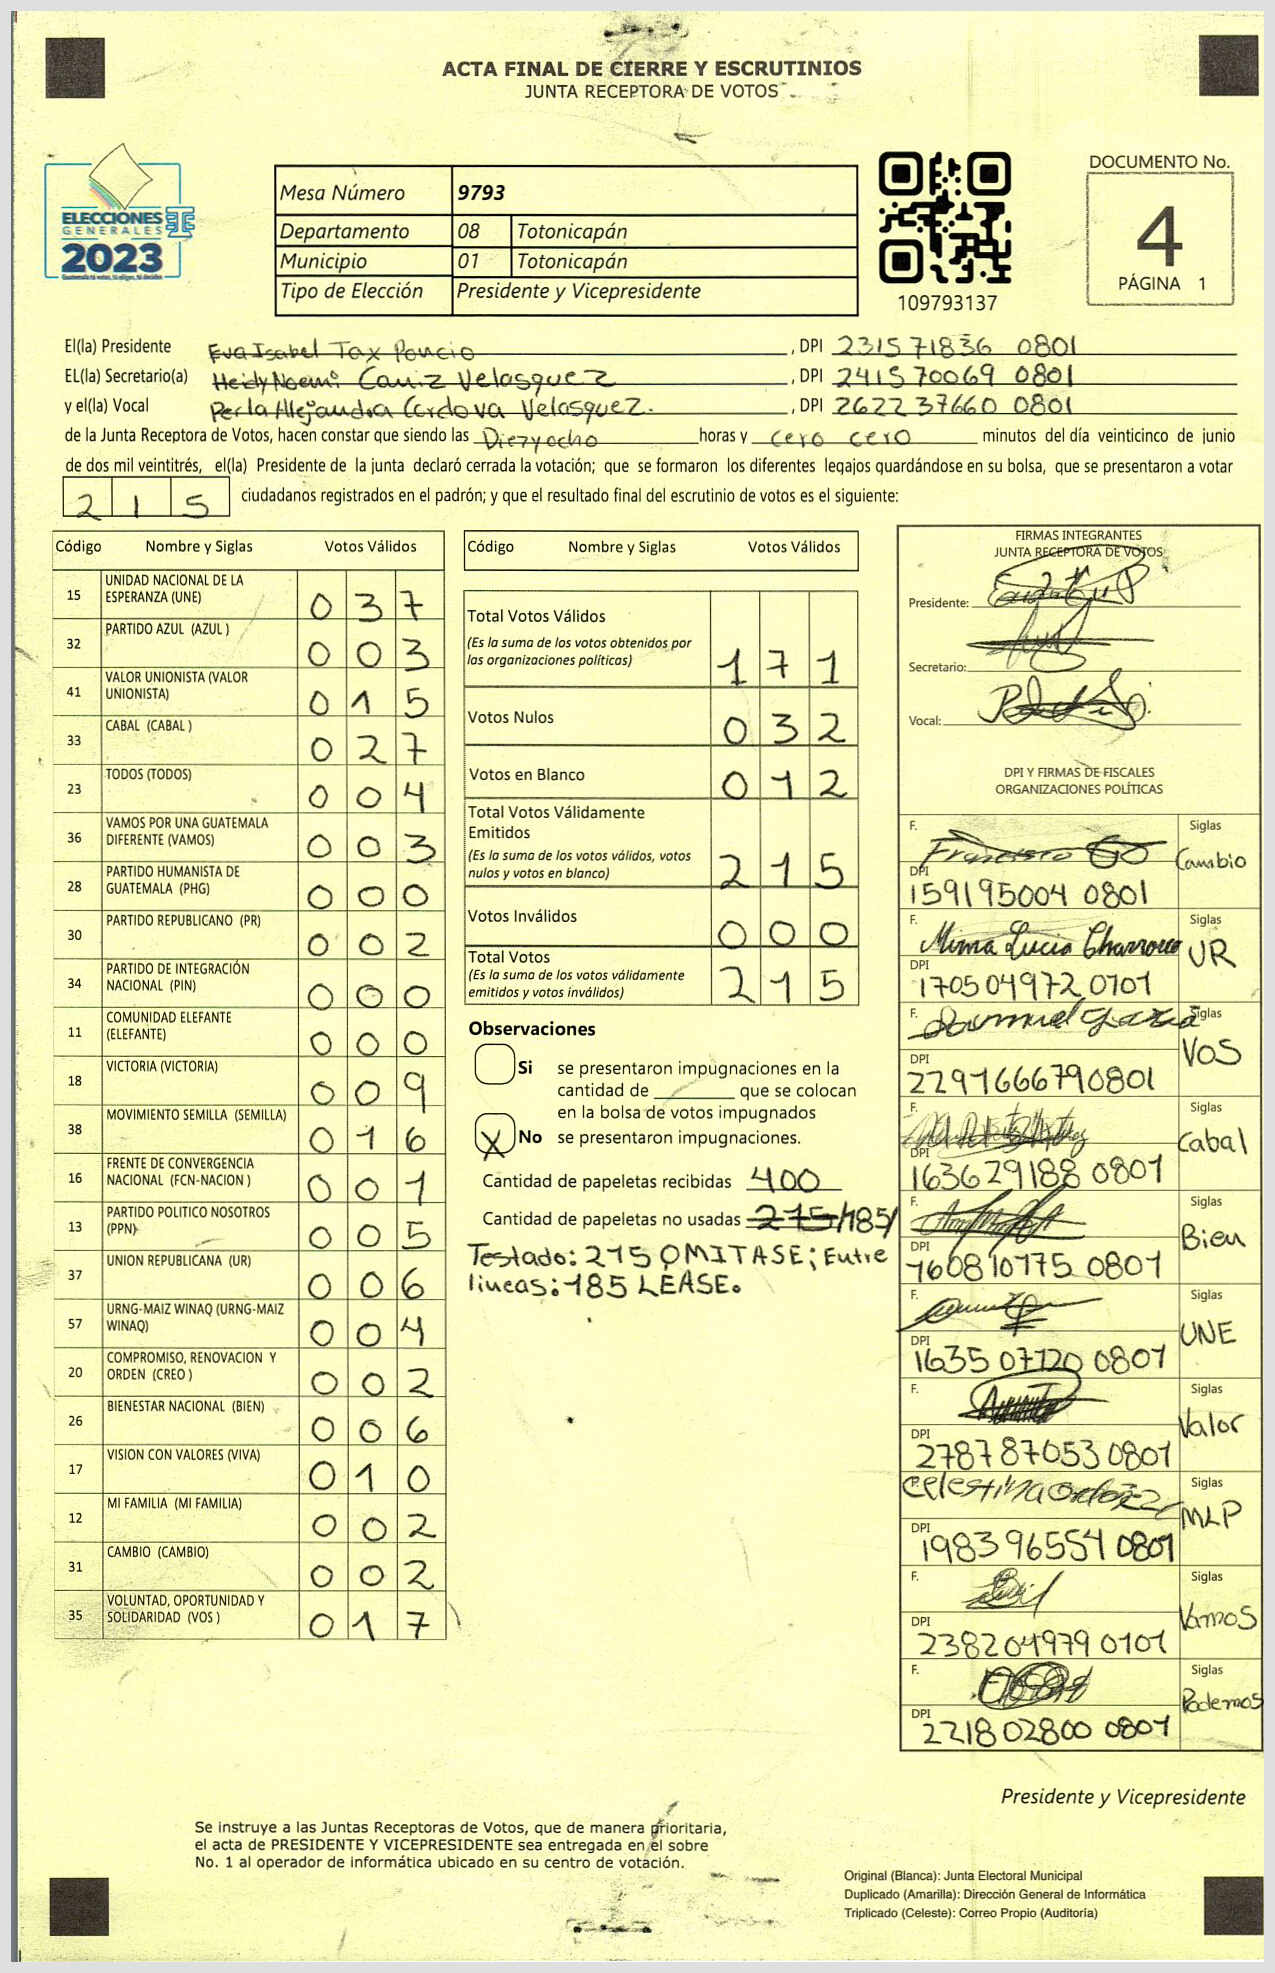 ACTA FINAL DE CIERRE Y ESCRUTINIOS
JUNTA RECEPTORA DE VOTOS
ELECCIONES
GENERALES
2023
Mesa Número 9793
Departamento 08 Totonicapán
Municipio 01 Totonicapán
Tipo de Elección Presidente y Vicepresidente
109793137
DOCUMENTO No.
4
PÁGINA 1
El(la) Presidente Eva Isabel Tax Poncio, DPI 231571836 0801
EL(la) Secretario(a) Heidy Noemi Caniz Velasquez, DPI 241570069 0801
y el(la) Vocal Perla Alejandra Cordova Velasquez., DPI 262237660 0801
de la Junta Receptora de Votos, hacen constar que siendo las Diezyocho horas y cero cero minutos del día veinticinco de junio
de dos mil veintitrés, el(la) Presidente de la junta declaró cerrada la votación; que se formaron los diferentes legajos guardándose en su bolsa, que se presentaron a votar
215 ciudadanos registrados en el padrón; y que el resultado final del escrutinio de votos es el siguiente:
Código Nombre y Siglas Votos Válidos
15 UNIDAD NACIONAL DE LA ESPERANZA (UNE) 037
32 PARTIDO AZUL (AZUL ) 003
41 VALOR UNIONISTA (VALOR UNIONISTA) 015
33 CABAL (CABAL ) 027
23 TODOS (TODOS) 004
36 VAMOS POR UNA GUATEMALA DIFERENTE (VAMOS) 003
28 PARTIDO HUMANISTA DE GUATEMALA (PHG) 000
30 PARTIDO REPUBLICANO (PR) 002
34 PARTIDO DE INTEGRACIÓN NACIONAL (PIN) 000
11 COMUNIDAD ELEFANTE (ELEFANTE) 000
18 VICTORIA (VICTORIA) 009
38 MOVIMIENTO SEMILLA (SEMILLA) 016
16 FRENTE DE CONVERGENCIA NACIONAL (FCN-NACION ) 001
13 PARTIDO POLITICO NOSOTROS (PPN) 005
37 UNION REPUBLICANA (UR) 006
57 URNG-MAIZ WINAQ (URNG-MAIZ WINAQ) 004
20 COMPROMISO, RENOVACION Y ORDEN (CREO ) 002
26 BIENESTAR NACIONAL (BIEN) 006
17 VISION CON VALORES (VIVA) 010
12 MI FAMILIA (MI FAMILIA) 002
31 CAMBIO (CAMBIO) 002
35 VOLUNTAD, OPORTUNIDAD Y SOLIDARIDAD (VOS ) 017
Código Nombre y Siglas Votos Válidos
Total Votos Válidos 171
(Es la suma de los votos obtenidos por
las organizaciones políticas)
Votos Nulos 032
Votos en Blanco 012
Total Votos Válidamente
Emitidos 215
(Es la suma de los votos válidos, votos
nulos y votos en blanco)
Votos Inválidos 000
Total Votos 215
(Es la suma de los votos válidamente
emitidos y votos inválidos)
Observaciones
Si se presentaron impugnaciones en la
cantidad de ________ que se colocan
en la bolsa de votos impugnados
X No se presentaron impugnaciones.
Cantidad de papeletas recibidas 400
Cantidad de papeletas no usadas 215/185/
Testado: 215 OMITASE; Entre
lineas: 185 LEASE.
FIRMAS INTEGRANTES
JUNTA RECEPTORA DE VOTOS
Presidente:
Secretario:
Vocal:
DPI Y FIRMAS DE FISCALES
ORGANIZACIONES POLÍTICAS
F. Francisco Siglas Cambio
DPI 159195004 0801
F. Mirna Lucia Siglas UR
DPI 170504972 0101
F. Samuel Garcia Siglas VOS
DPI 229166679 0801
F. Siglas Cabal
DPI 163629188 0801
F. Siglas Bien
DPI 160810175 0801
F. Siglas UNE
DPI 1635 07720 0801
F. Siglas Valor
DPI 278787053 0801
F. Celestina Siglas MLP
DPI 198396554 0801
F. Siglas Vamos
DPI 238204979 0101
F. Siglas Podemos
DPI 221802800 0801
Presidente y Vicepresidente
Se instruye a las Juntas Receptoras de Votos, que de manera prioritaria,
el acta de PRESIDENTE Y VICEPRESIDENTE sea entregada en el sobre
No. 1 al operador de informática ubicado en su centro de votación.
Original (Blanca): Junta Electoral Municipal
Duplicado (Amarilla): Dirección General de Informática
Triplicado (Celeste): Correo Propio (Auditoría)